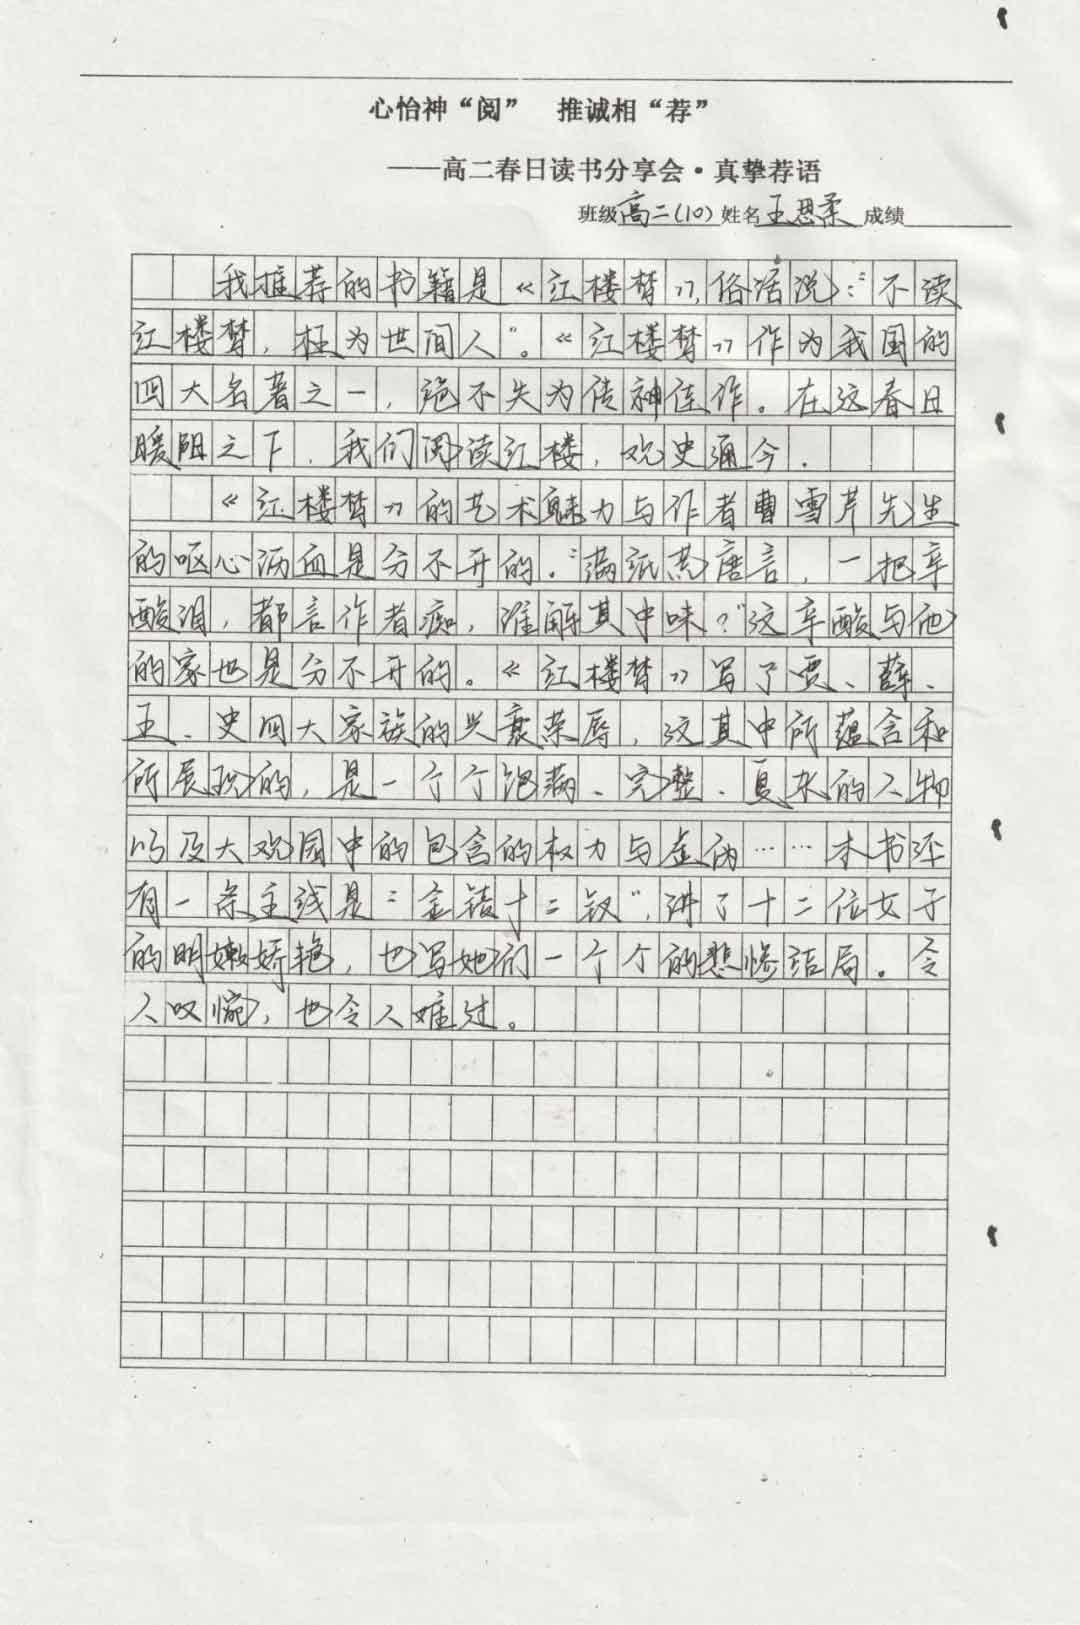 心怡神“阅” 推诚相“荐”
——高二春日读书分享会·真挚荐语
班级高二(10)姓名王思柔成绩
我推荐的书籍是《红楼梦》，俗话说：“不读
红楼梦，枉为世间人”。《红楼梦》作为我国的
四大名著之一，绝不失为传神佳作。在这春日
暖阳之下，我们阅读红楼，观史通今．
《红楼梦》的艺术魅力与作者曹雪芹先生
的呕心沥血是分不开的．“满纸荒唐言，一把辛
酸泪，都言作者痴，谁解其中味？”这辛酸与他
的家也是分不开的。《红楼梦》写了贾、薛、
王、史四大家族的兴衰荣辱，这其中所蕴含和
所展现的，是一个个饱满、完整、复杂的人物
以及大观园中的包含的权力与虚伪……本书还
有一条主线是“金陵十二钗”，讲了十二位女子
的明媚娇艳，也写她们一个个的悲惨结局。令
人叹惋，也令人难过。